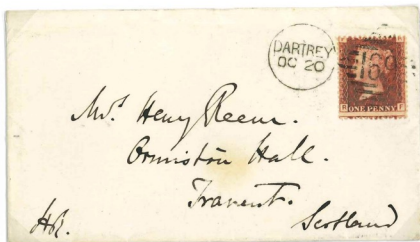 DARTREY
OC 20
169
ONE PENNY
Mrs Henry Reeve.
Ormiston Hall.
Tranent.
Scotland
HR.